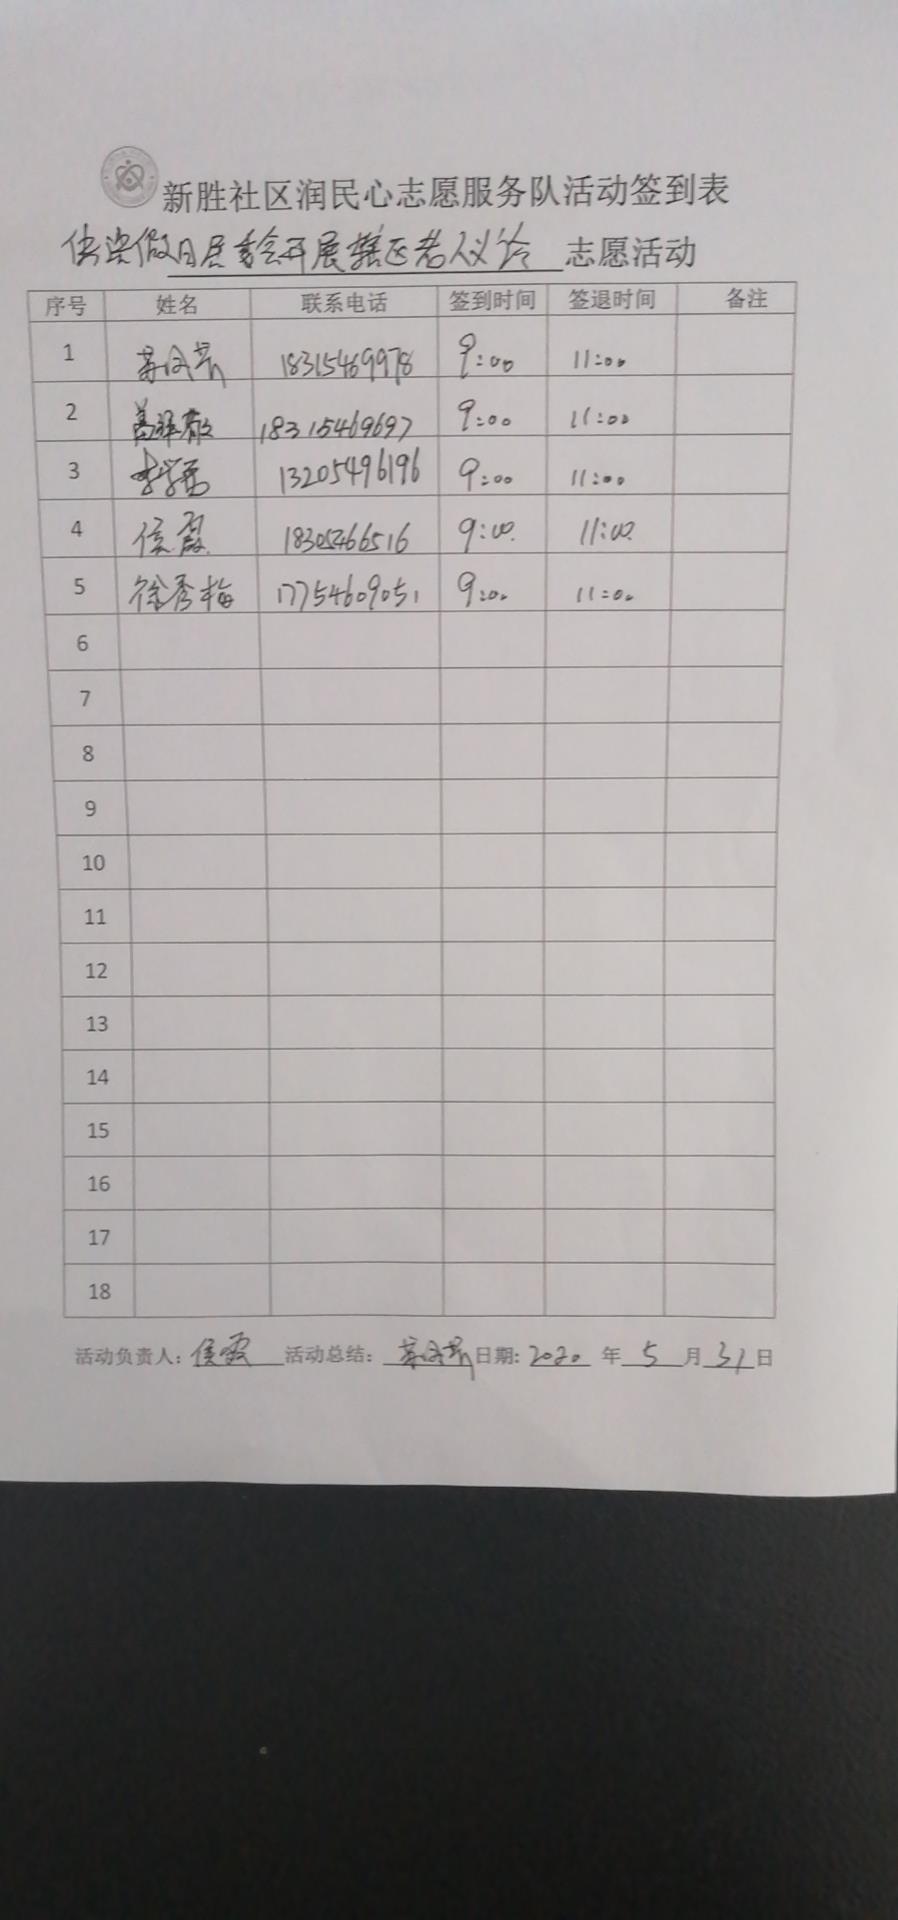 新胜社区润民心志愿服务队活动签到表
供染假日居委会开展辖区老人义诊 志愿活动
序号 姓名 联系电话 签到时间 签退时间 备注
1 18315469978 9:00 11:00
2 18315469697 9:00 11:00
3 13205496196 9:00 11:00
4 侯霞 18305466516 9:00 11:00
5 徐秀梅 17754609051 9:00 11:00
6
7
8
9
10
11
12
13
14
15
16
17
18
活动负责人: 侯霞 活动总结: 日期: 2020 年 5 月 31 日